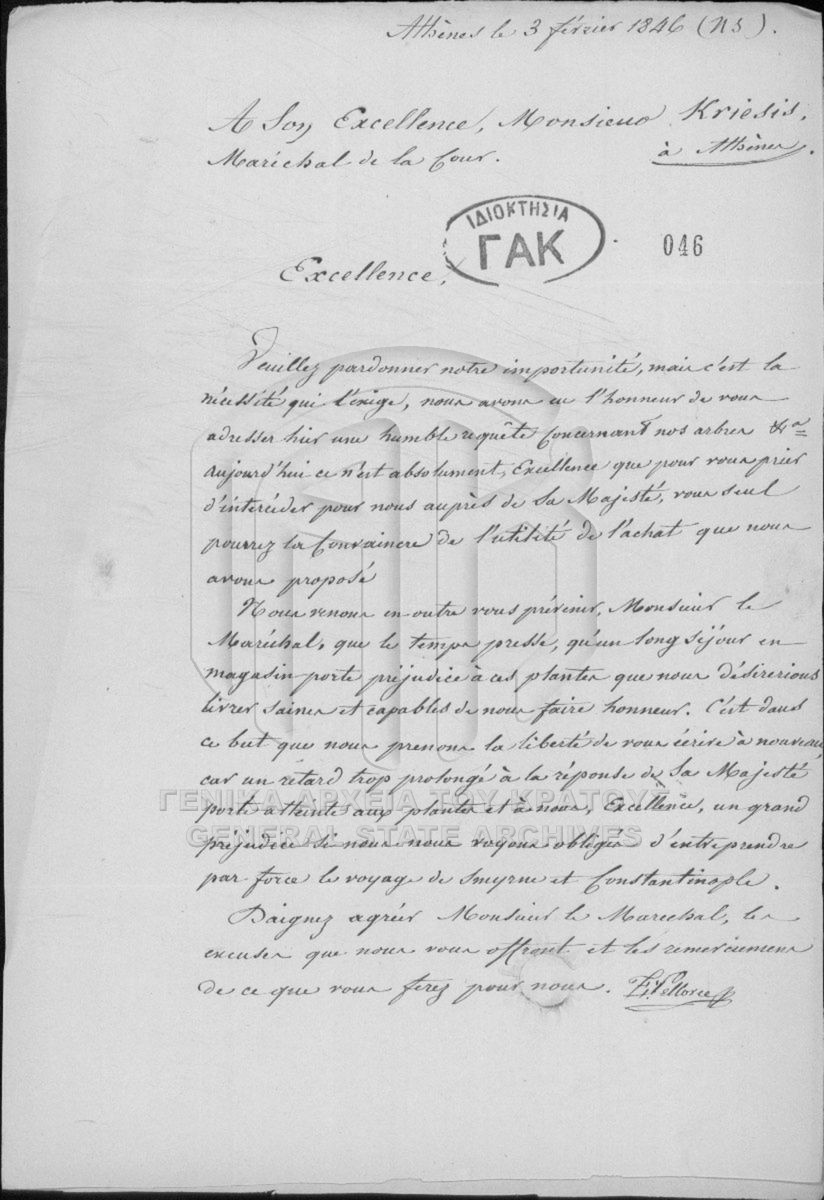 Athènes le 3 février 1846 (NS).
A Son Excellence, Monsieur Kriesis,
Maréchal de la Cour. à Athènes.
ΙΔΙΟΚΤΗΣΙΑ
ΓΑΚ
046
Excellence,
Veuillez pardonner notre importunité, mais c'est la
nécessité qui l'exige, nous avons eu l'honneur de vous
adresser hier une humble requête concernant nos arbres &ca
aujourd'hui ce n'est absolument, Excellence que pour vous prier
d'intercéder pour nous auprès de Sa Majesté, vous seul
pourrez la Convaincre de l'utilité de l'achat que nous
avons proposé
Nous venons en outre vous prévenir, Monsieur le
Maréchal, que le temps presse, qu'un long séjour en
magasin porte préjudice à ces plantes que nous désirerions
livrer saines et capables de nous faire honneur. C'est dans
ce but que nous prenons la liberté de vous écrire à nouveau,
car un retard trop prolongé à la réponse de Sa Majesté
porte atteinte aux plantes et à nous, Excellence, un grand
préjudice si nous nous voyons obligés d'entreprendre
par force le voyage de Smyrne et Constantinople.
Daignez agréer Monsieur le Marechal, les
excuses que nous vous offront et les remerciemens
de ce que vous ferez pour nous.
ΓΕΝΙΚΑ ΑΡΧΕΙΑ ΤΟΥ ΚΡΑΤΟΥΣ
GENERAL STATE ARCHIVES